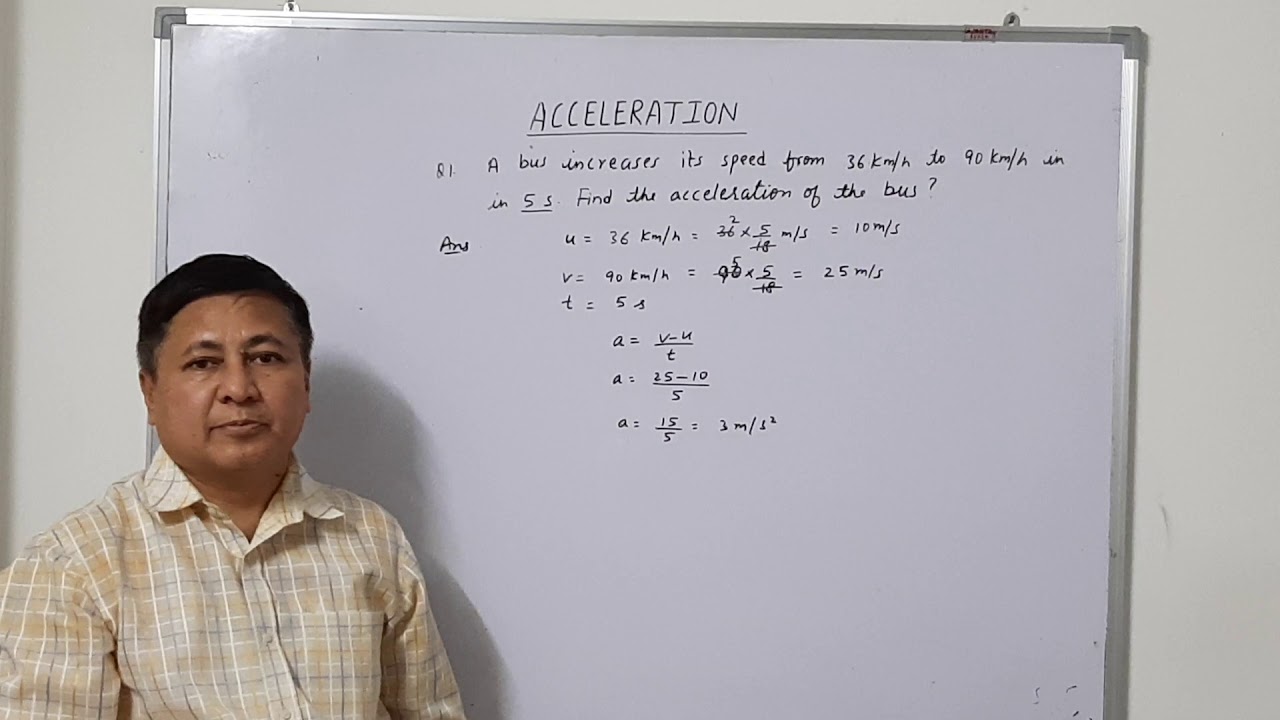 ACCELERATION
Q1. A bus increases its speed from 36 km/h to 90 km/h in
in 5 s. Find the acceleration of the bus?
Ans u = 36 km/h = 36² × 5/18 m/s = 10 m/s
v = 90 km/h = 90⁵ × 5/18 = 25 m/s
t = 5 s
a = v-u/t
a = 25-10/5
a = 15/5 = 3 m/s²